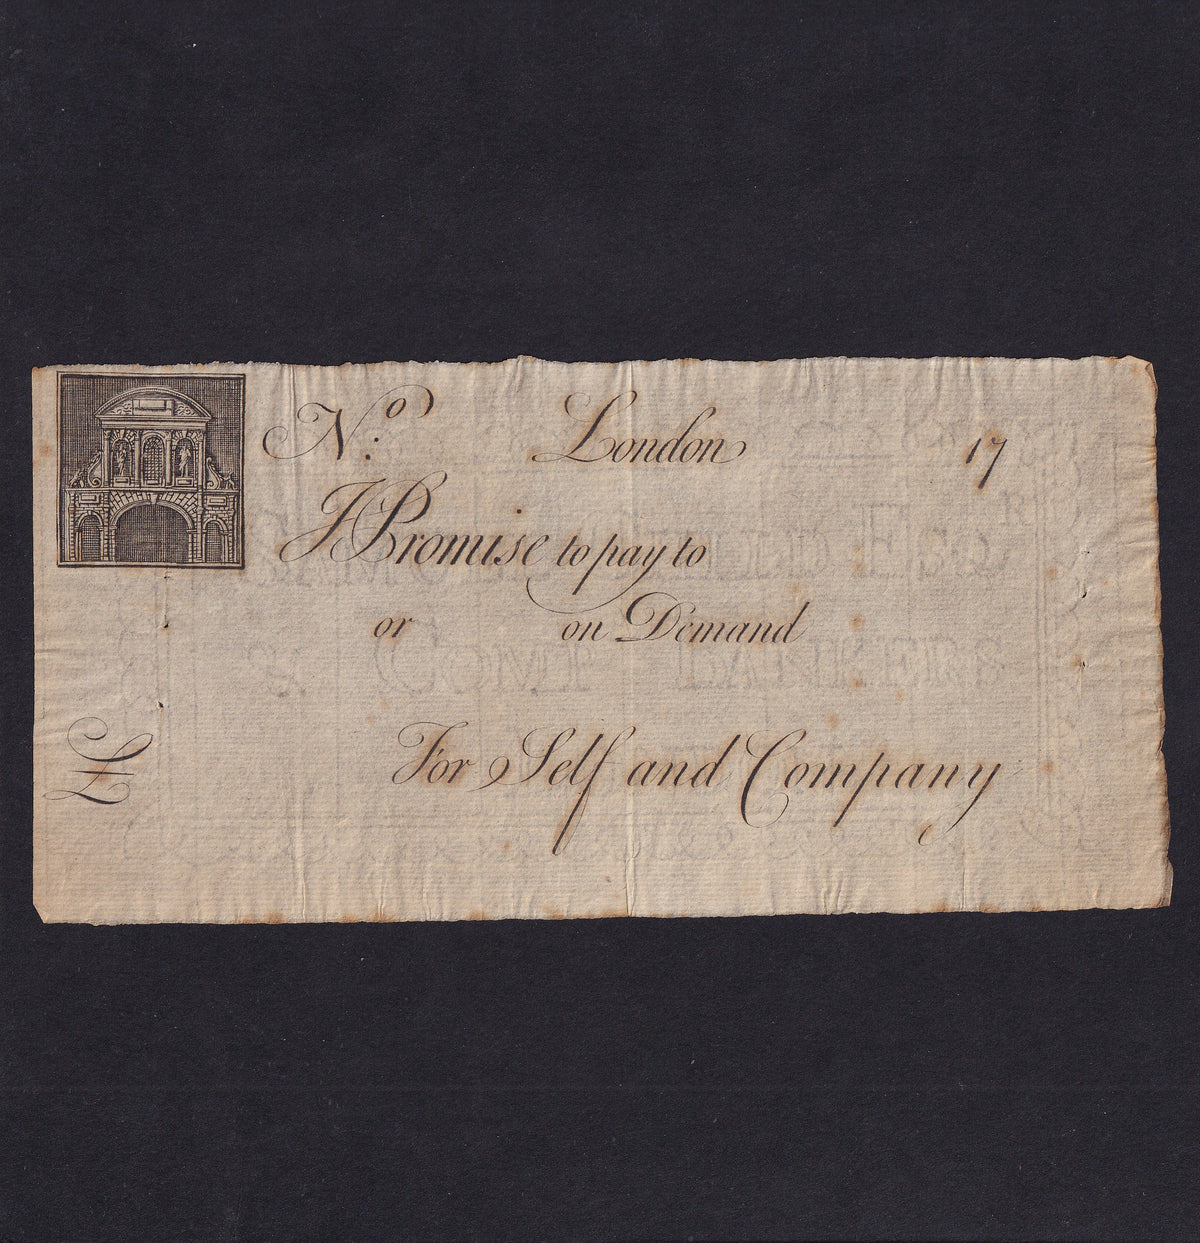 No: London 17
I Promise to pay to
or on Demand
£
For Self and Company